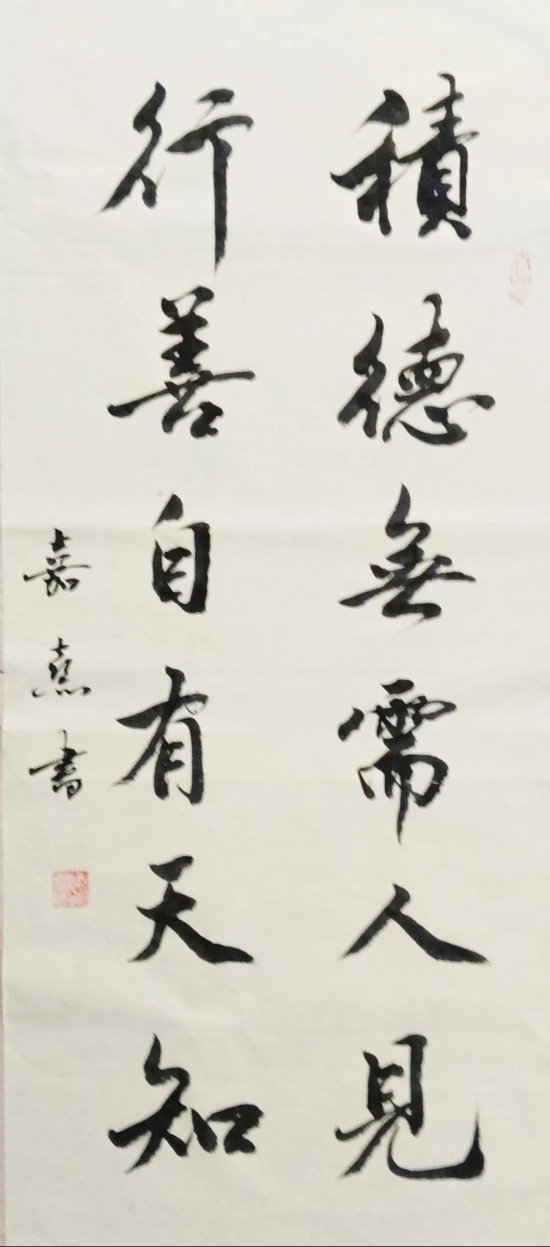 積德無需人見
行善自有天知
嘉熹書